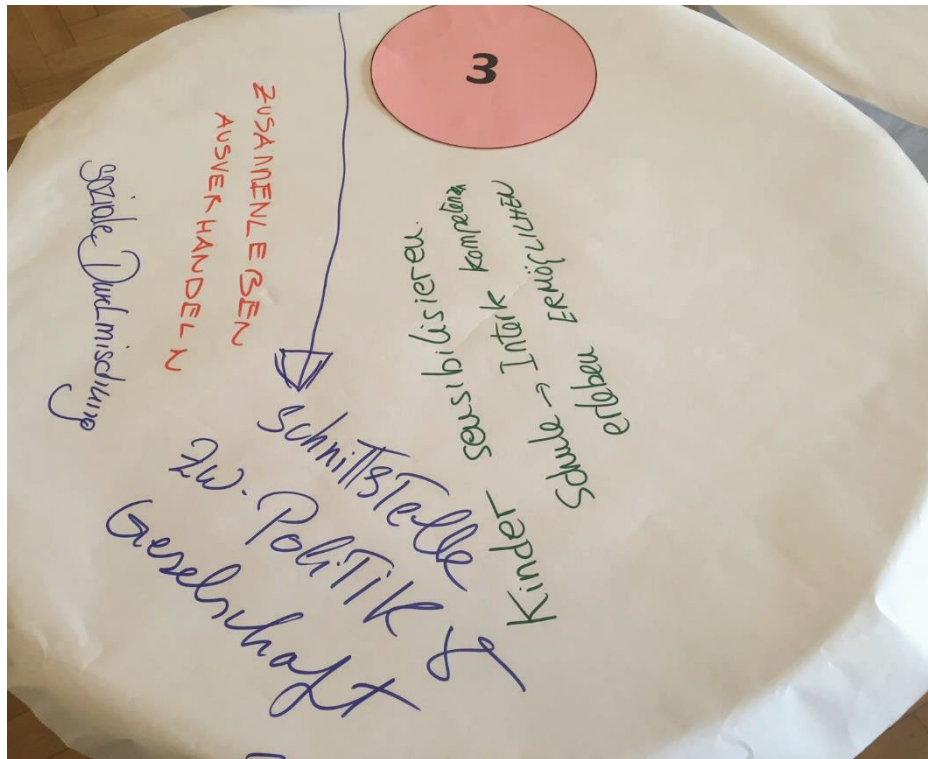 3
ZUSAMMENLEBEN
AUSVERHANDELN
soziale Durchmischung
Schnittstelle
zw. Politik &
Geselschaft
Kinder sensibilisieren.
Schule → Interk kompetenzen
erleben ERMÖGLICHEN